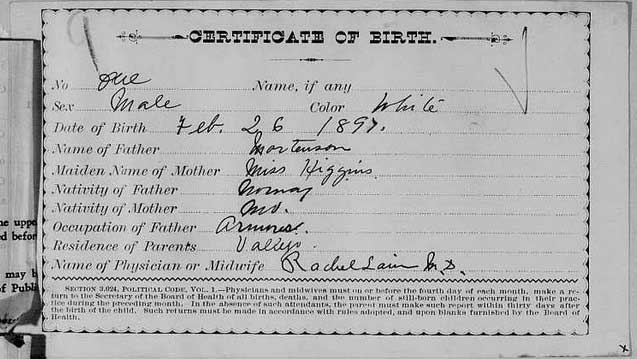 CERTIFICATE OF BIRTH.
No one Name, if any
Sex Male Color White
Date of Birth Feb. 26 1897.
Name of Father Mortenson
Maiden Name of Mother Miss Higgins.
Nativity of Father Norway
Nativity of Mother Mo.
Occupation of Father
Residence of Parents Vallejo.
Name of Physician or Midwife Rachel M.D.
SECTION 3,024, POLITICAL CODE, VOL. 1.—Physicians and midwives must on or before the fourth day of each month, make a re-
turn to the Secretary of the Board of Health of all births, deaths, and the number of still-born children occurring in their prac-
tice during the preceding month. In the absence of such attendants, the parent must make such report within thirty days after
the birth of the child. Such returns must be made in accordance with rules adopted, and upon blanks furnished by the Board of
Health.
he uppe
ed befor
may b
of Publi
x